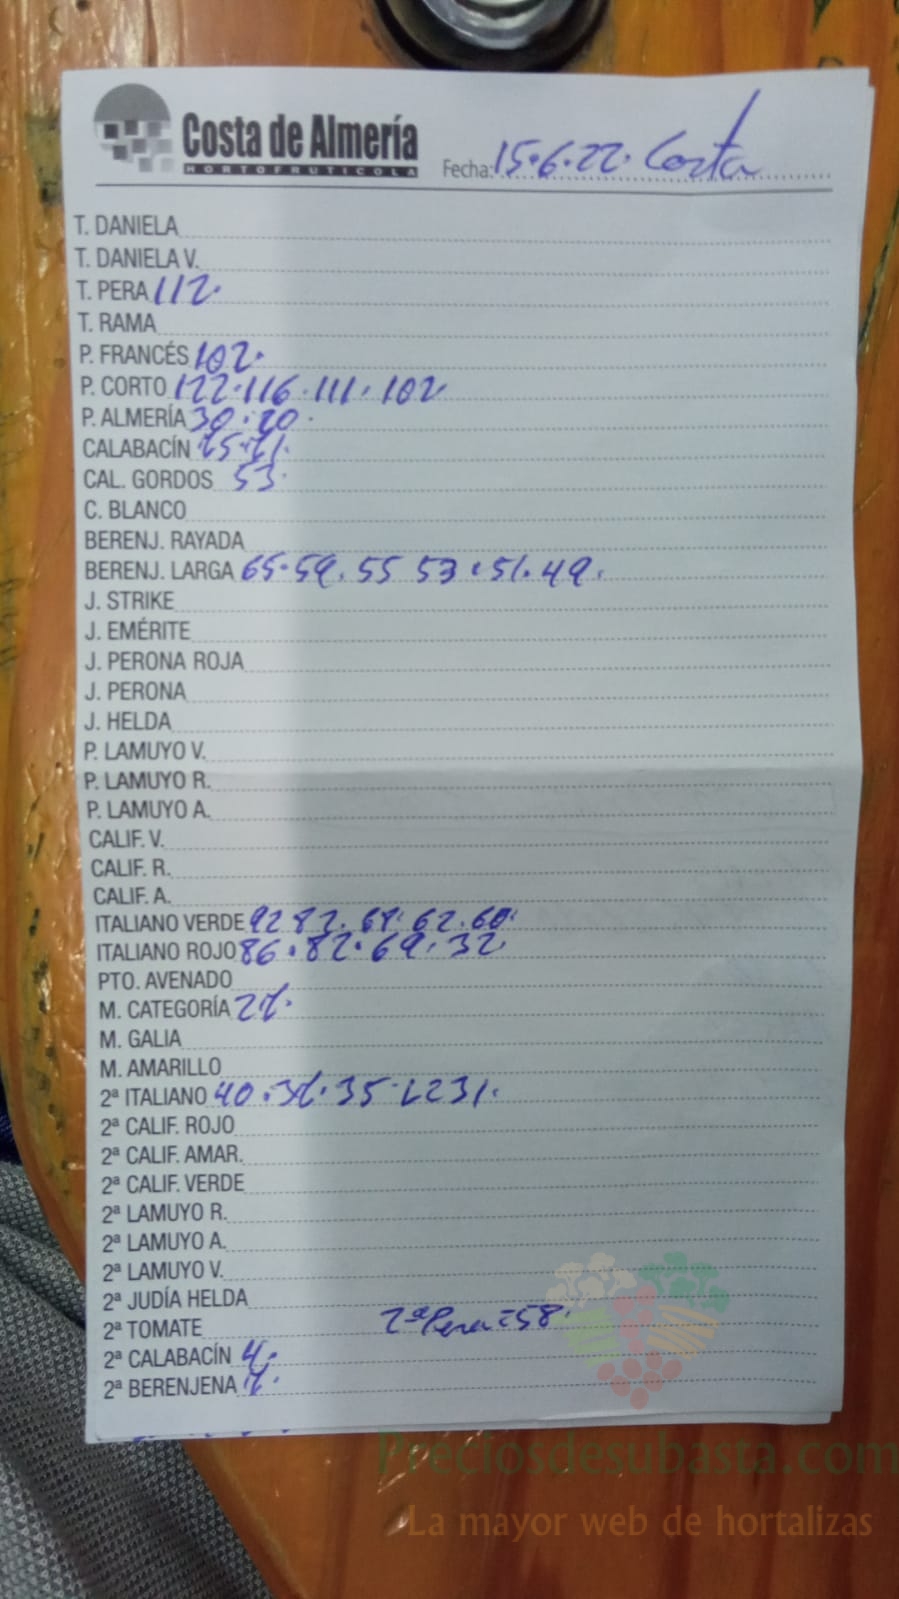 Costa de Almería
HORTOFRUTICOLA
Fecha: 15.6.22. Costa
T. DANIELA
T. DANIELA V.
T. PERA 112.
T. RAMA
P. FRANCÉS 102.
P. CORTO 122.116.111.102
P. ALMERÍA 30.20.
CALABACÍN
CAL. GORDOS 53.
C. BLANCO
BERENJ. RAYADA
BERENJ. LARGA 65.59.55 53.51.49.
J. STRIKE
J. EMÉRITE
J. PERONA ROJA
J. PERONA
J. HELDA
P. LAMUYO V.
P. LAMUYO R.
P. LAMUYO A.
CALIF. V.
CALIF. R.
CALIF. A.
ITALIANO VERDE 92 62.60.
ITALIANO ROJO 86.82.69.32
PTO. AVENADO
M. CATEGORÍA
M. GALIA
M. AMARILLO
2ª ITALIANO 40. 35
2ª CALIF. ROJO
2ª CALIF. AMAR.
2ª CALIF. VERDE
2ª LAMUYO R.
2ª LAMUYO A.
2ª LAMUYO V.
2ª JUDÍA HELDA
2ª TOMATE 2ª Pera = 58.
2ª CALABACÍN 4.
2ª BERENJENA
Preciosdesubasta.com
La mayor web de hortalizas